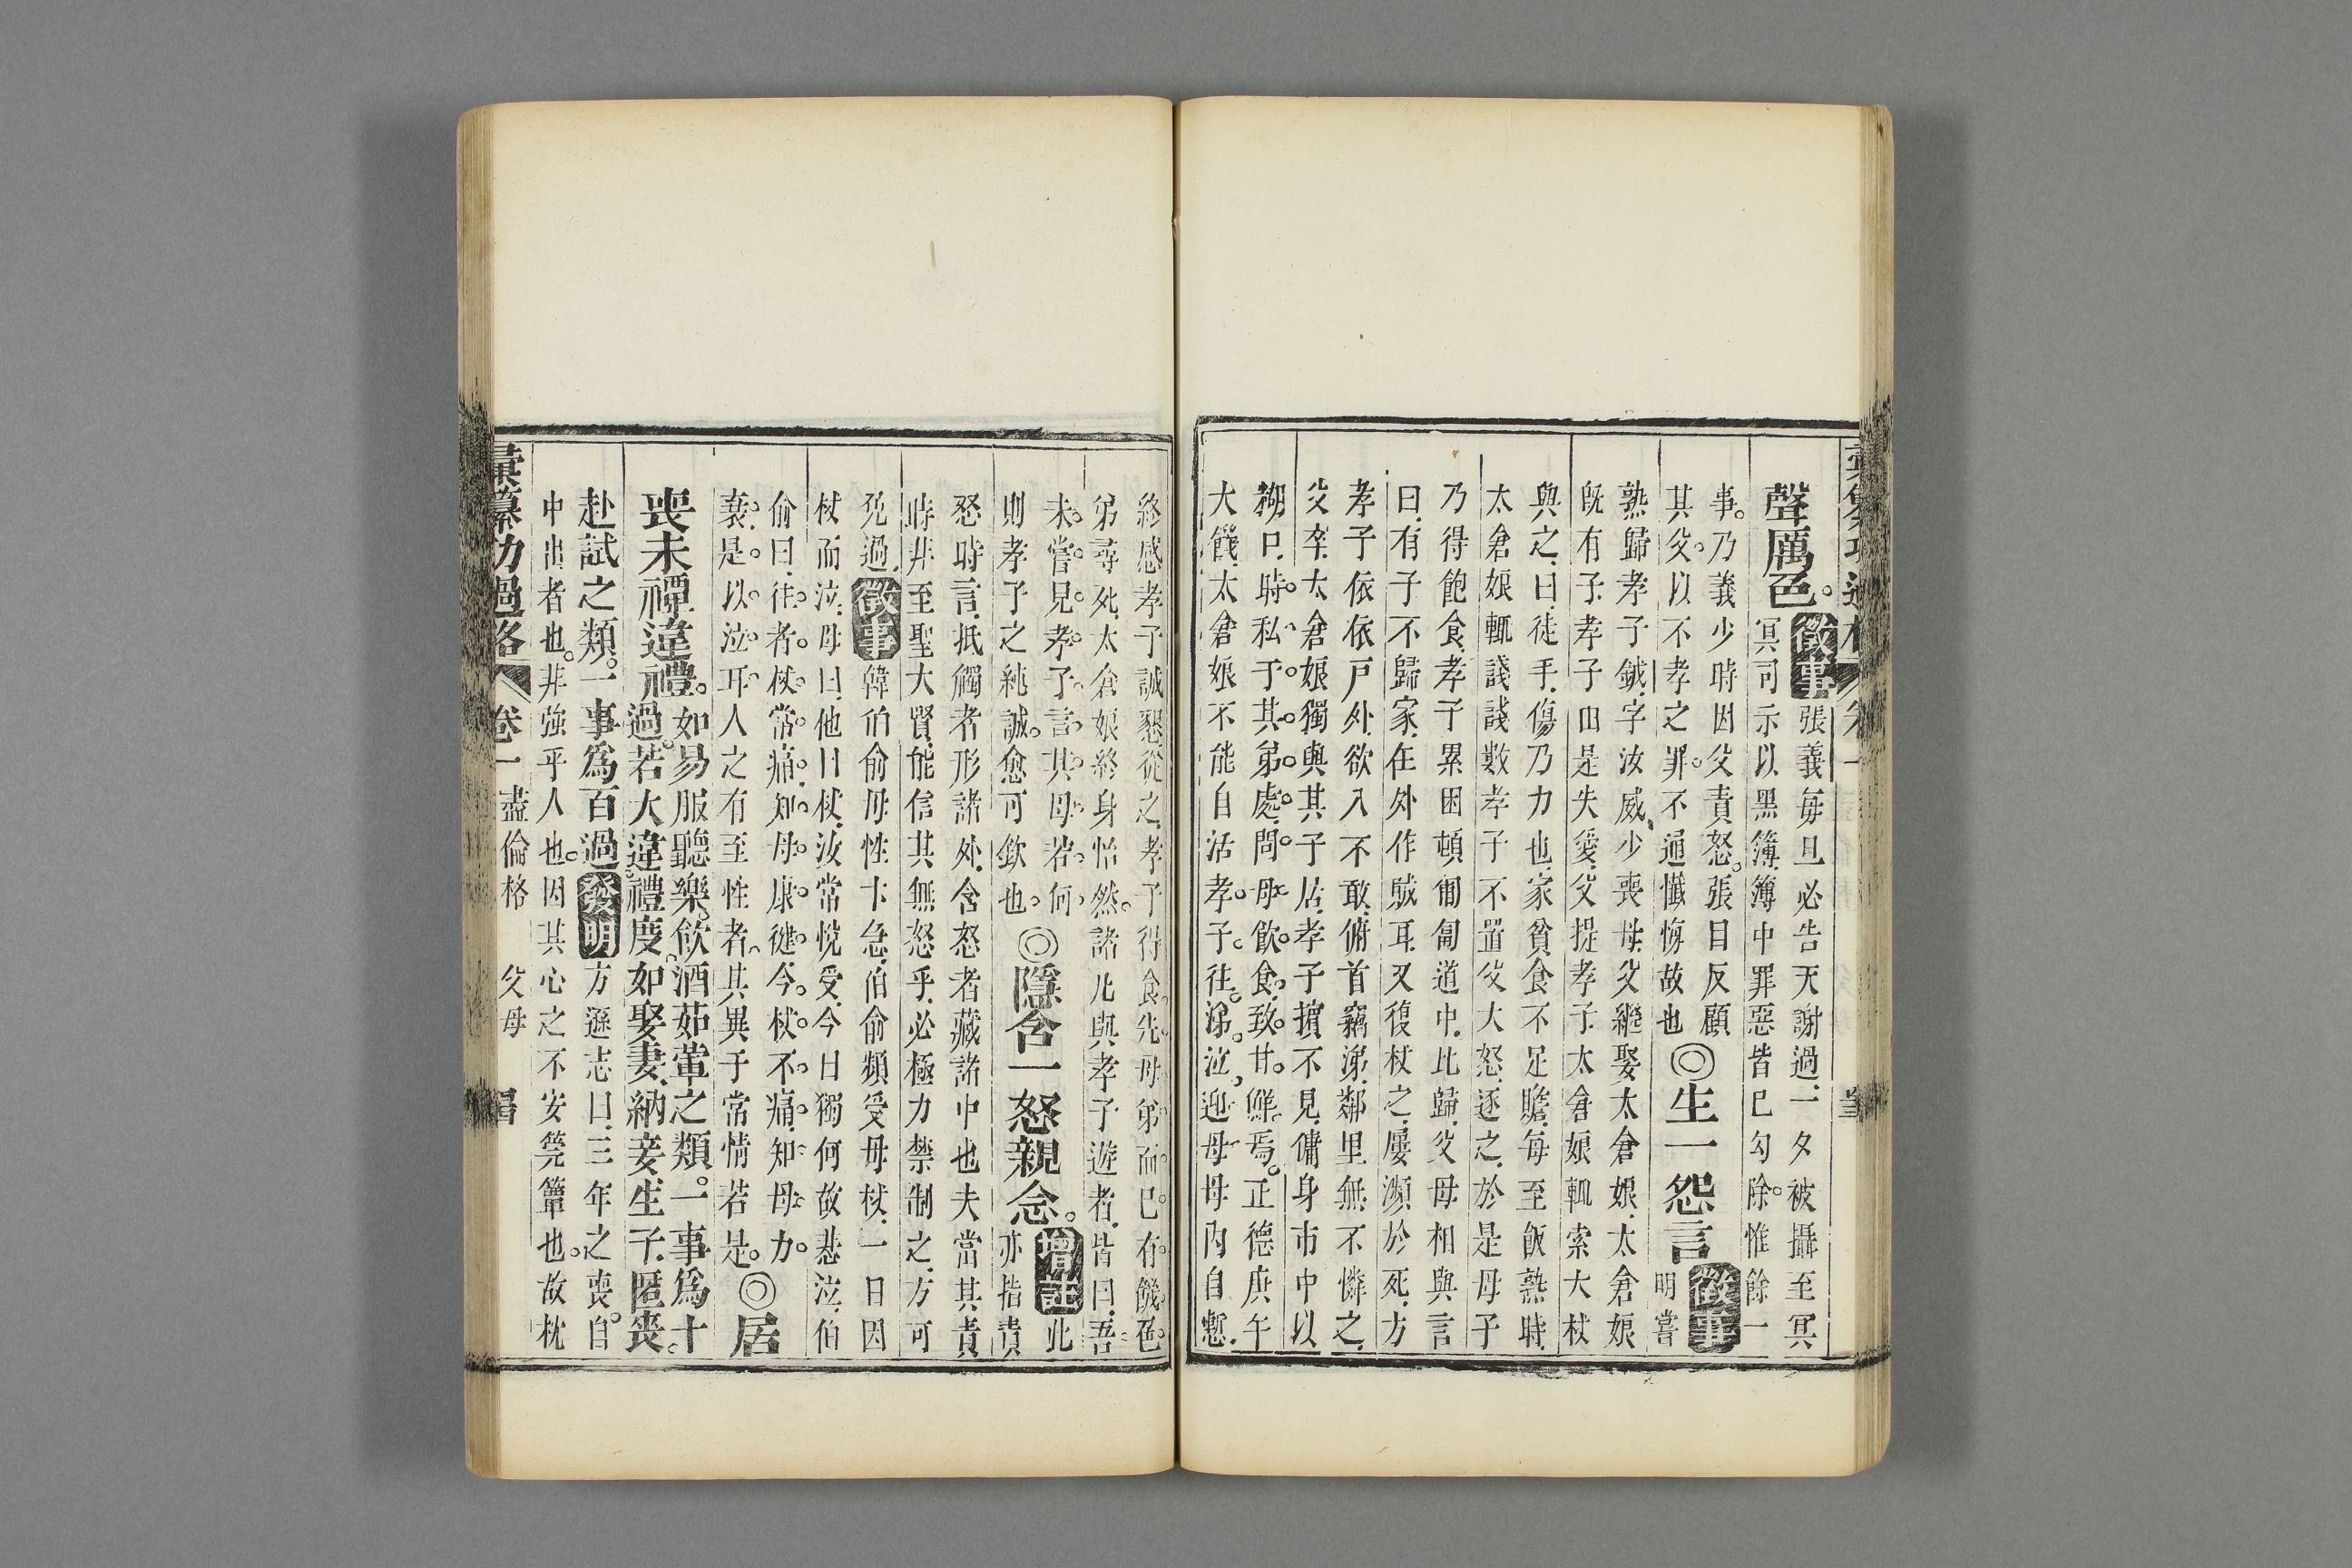 聲厲色。徵事張義每旦必告天謝過一夕被攝至冥
冥司示以黑簿簿中罪惡皆已勾除。惟餘一
事。乃義少時因父責怒。張目反顧
其父。以不孝之罪。不通懺悔故也◎生一怨言徵事明嘗
熟歸孝子鉞字汝威少喪母父繼娶太倉娘太倉娘
既有子孝子由是失愛父提孝子太倉娘輒索大杖
與之曰徒手傷乃力也家貧食不足贍每至飯熟時
太倉娘輒諓諓數孝子不置父大怒逐之於是母子
乃得飽食孝子累困頓匍匐道中比歸父母相與言
曰有子不歸家在外作賊耳又復杖之屢瀕於死方
孝子依依戶外欲入不敢俯首竊涕鄰里無不憐之
父卒太倉娘獨與其子居孝子擯不見傭身市中以
糊口時私于其弟處問母飲食致甘鮮焉。正德庚午
大饑太倉娘不能自活孝子往涕泣迎母母內自慙
終感孝子誠懇從之孝子得食先母弟而己有饑色
弟尋死太倉娘終身怡然。諸凡與孝子遊者皆曰吾
未嘗見孝子言其母若何
則孝子之純誠。愈可欽也。◎隱含一怒親念。增註此
亦指責
怒時言抵觸者形諸外含怒者藏諸中也夫當其責
時非至聖大賢能信其無怒乎必極力禁制之方可
免過徵事韓伯俞母性卞急伯俞頻受母杖一日因
杖而泣母曰他日杖汝常悅受今日獨何故悲泣伯
俞曰往者杖常痛知母康健今杖不痛知母力
衰是以泣耳人之有至性者其異于常情若是。◎居
喪未禫違禮。如易服聽樂。飲酒茹葷之類。一事爲十
過。若大違禮度。如娶妻納妾生子匿喪。
赴試之類。一事爲百過。發明方遜志曰三年之喪。自
中出者也。非強乎人也。因其心之不安筦簟也。故枕
彙纂功過格 卷一 盡倫格 父母